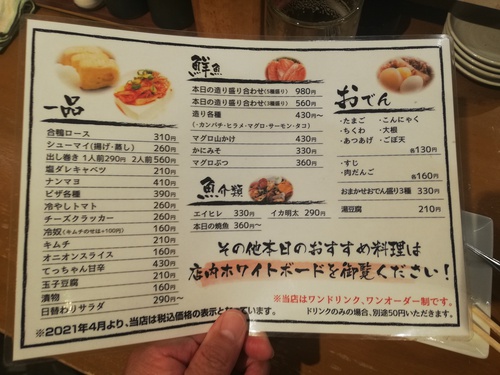 一品
合鴨ロース 310円
シューマイ(揚げ・蒸し) 260円
出し巻き 1人前290円 2人前560円
塩ダレキャベツ 210円
ナンマヨ 410円
ピザ各種 390円
冷やしトマト 260円
チーズクラッカー 260円
冷奴(キムチのせは+100円) 210円
キムチ 210円
オニオンスライス 160円
てっちゃん甘辛 430円
玉子豆腐 210円
漬物 210円
日替わりサラダ 290円~
鮮魚
本日の造り盛り合わせ(5種盛り) 980円
本日の造り盛り合わせ(3種盛り) 560円
造り各種 430円~
(・カンパチ・ヒラメ・マグロ・サーモン・タコ)
マグロ山かけ 430円
かにみそ 330円
マグロぶつ 360円
魚介類
エイヒレ 330円 イカ明太 290円
本日の焼魚 360円~
おでん
・たまご ・こんにゃく
・ちくわ ・大根
・あつあげ ・ごぼ天
各130円
・すじ
・肉だんご 各160円
おまかせおでん盛り3種 330円
湯豆腐 210円
その他本日のおすすめ料理は
店内ホワイトボードを御覧ください!
※当店はワンドリンク、ワンオーダー制です。
ドリンクのみの場合、別途50円いただきます。
※2021年4月より、当店は税込価格の表示と
ています。